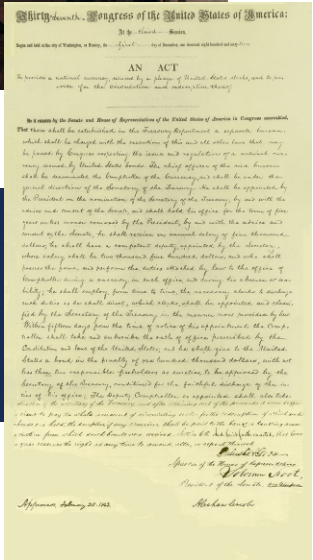 Thirty-seventh Congress of the United States of America:
At the third Session,
Begun and held at the city of Washington, on Monday, the first day of December, one thousand eight hundred and sixty-two
AN ACT
To provide a national currency, secured by a pledge of United States stocks, and to provide for the circulation and redemption thereof.
Be it enacted by the Senate and House of Representatives of the United States of America in Congress assembled,
That there shall be established in the Treasury Department a separate bureau,
which shall be charged with the execution of this and all other laws that may
be passed by Congress respecting the issue and regulation of a national currency
secured by United States bonds. The chief officer of the said bureau
shall be denominated the Comptroller of the Currency, and shall be under the
general direction of the Secretary of the Treasury. He shall be appointed by
the President, on the nomination of the Secretary of the Treasury, by and with the
advice and consent of the Senate, and shall hold his office for the term of five
years unless sooner removed by the President, by and with the advice and
consent of the Senate; he shall receive an annual salary of five thousand
dollars; he shall have a competent deputy, appointed by the Secretary,
whose salary shall be two thousand five hundred dollars, and who shall
possess the power and perform the duties attached by law to the office of
Comptroller during a vacancy in such office and during his absence or
inability; he shall employ, from time to time, the necessary clerks to discharge
such duties as he shall direct, which clerks shall be appointed and classified
by the Secretary of the Treasury in the manner now provided by law.
Within fifteen days from the time of notice of his appointment the Comptroller
shall take and subscribe the oath of office prescribed by the
Constitution and laws of the United States; and he shall give to the United
States a bond in the penalty of one hundred thousand dollars, with not
less than two responsible freeholders as sureties, to be approved by the
Secretary of the Treasury, conditioned for the faithful discharge of the duties
of his office. The Deputy Comptroller so appointed shall also take
Speaker of the House of Representatives
President of the Senate
Approved February 25. 1863.
Abraham Lincoln